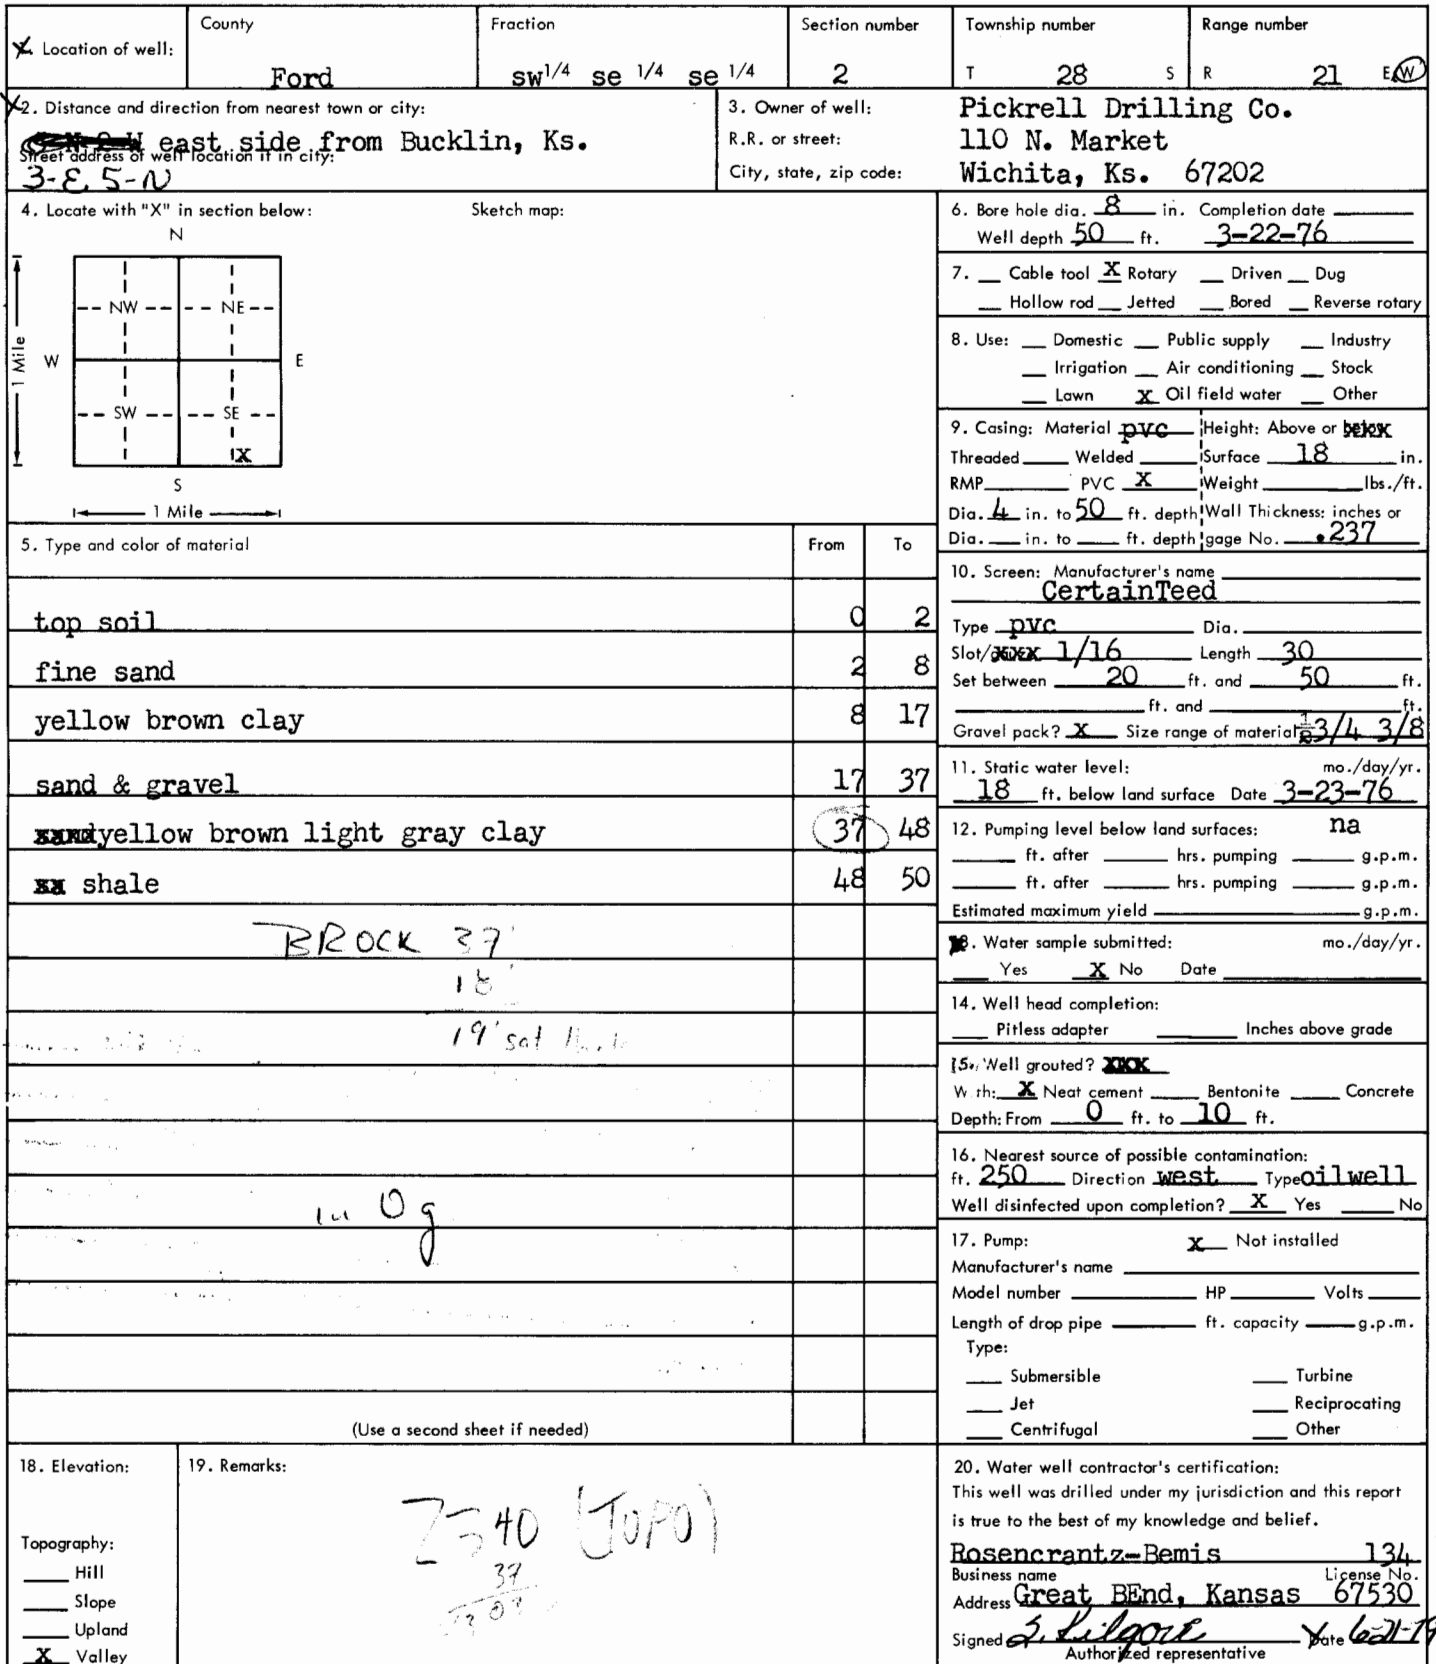 1. Location of well:
County
Ford
Fraction
sw 1/4 se 1/4 se 1/4
Section number
2
Township number
T 28 S
Range number
R 21 E/W
2. Distance and direction from nearest town or city:
east side from Bucklin, Ks.
Street address of well location if in city:
3-E 5-N
3. Owner of well: Pickrell Drilling Co.
R.R. or street: 110 N. Market
City, state, zip code: Wichita, Ks. 67202
4. Locate with "X" in section below: Sketch map:
N
NW NE
W E
1 Mile
SW SE
X
S
1 Mile
5. Type and color of material From To
top soil 0 2
fine sand 2 8
yellow brown clay 8 17
sand & gravel 17 37
yellow brown light gray clay 37 48
shale 48 50
BROCK 37'
18'
19' sat
in Og
(Use a second sheet if needed)
6. Bore hole dia. 8 in. Completion date
Well depth 50 ft. 3-22-76
7. Cable tool X Rotary Driven Dug
Hollow rod Jetted Bored Reverse rotary
8. Use: Domestic Public supply Industry
Irrigation Air conditioning Stock
Lawn X Oil field water Other
9. Casing: Material pvc Height: Above or below
Threaded Welded Surface 18 in.
RMP PVC X Weight lbs./ft.
Dia. 4 in. to 50 ft. depth Wall Thickness: inches or
Dia. in. to ft. depth gage No. .237
10. Screen: Manufacturer's name
CertainTeed
Type pvc Dia.
Slot/ 1/16 Length 30
Set between 20 ft. and 50 ft.
ft. and ft.
Gravel pack? X Size range of material 3/4 3/8
11. Static water level: mo./day/yr.
18 ft. below land surface Date 3-23-76
12. Pumping level below land surfaces: na
ft. after hrs. pumping g.p.m.
ft. after hrs. pumping g.p.m.
Estimated maximum yield g.p.m.
13. Water sample submitted: mo./day/yr.
Yes X No Date
14. Well head completion:
Pitless adapter Inches above grade
15. Well grouted? XXX
With: X Neat cement Bentonite Concrete
Depth: From 0 ft. to 10 ft.
16. Nearest source of possible contamination:
ft. 250 Direction west Type oil well
Well disinfected upon completion? X Yes No
17. Pump: X Not installed
Manufacturer's name
Model number HP Volts
Length of drop pipe ft. capacity g.p.m.
Type:
Submersible Turbine
Jet Reciprocating
Centrifugal Other
18. Elevation:
Topography:
Hill
Slope
Upland
X Valley
19. Remarks:
2340 (TOPO)
37
20. Water well contractor's certification:
This well was drilled under my jurisdiction and this report
is true to the best of my knowledge and belief.
Rosencrantz-Bemis 134
Business name License No.
Address Great BEnd, Kansas 67530
Signed S. Kilgore Date
Authorized representative